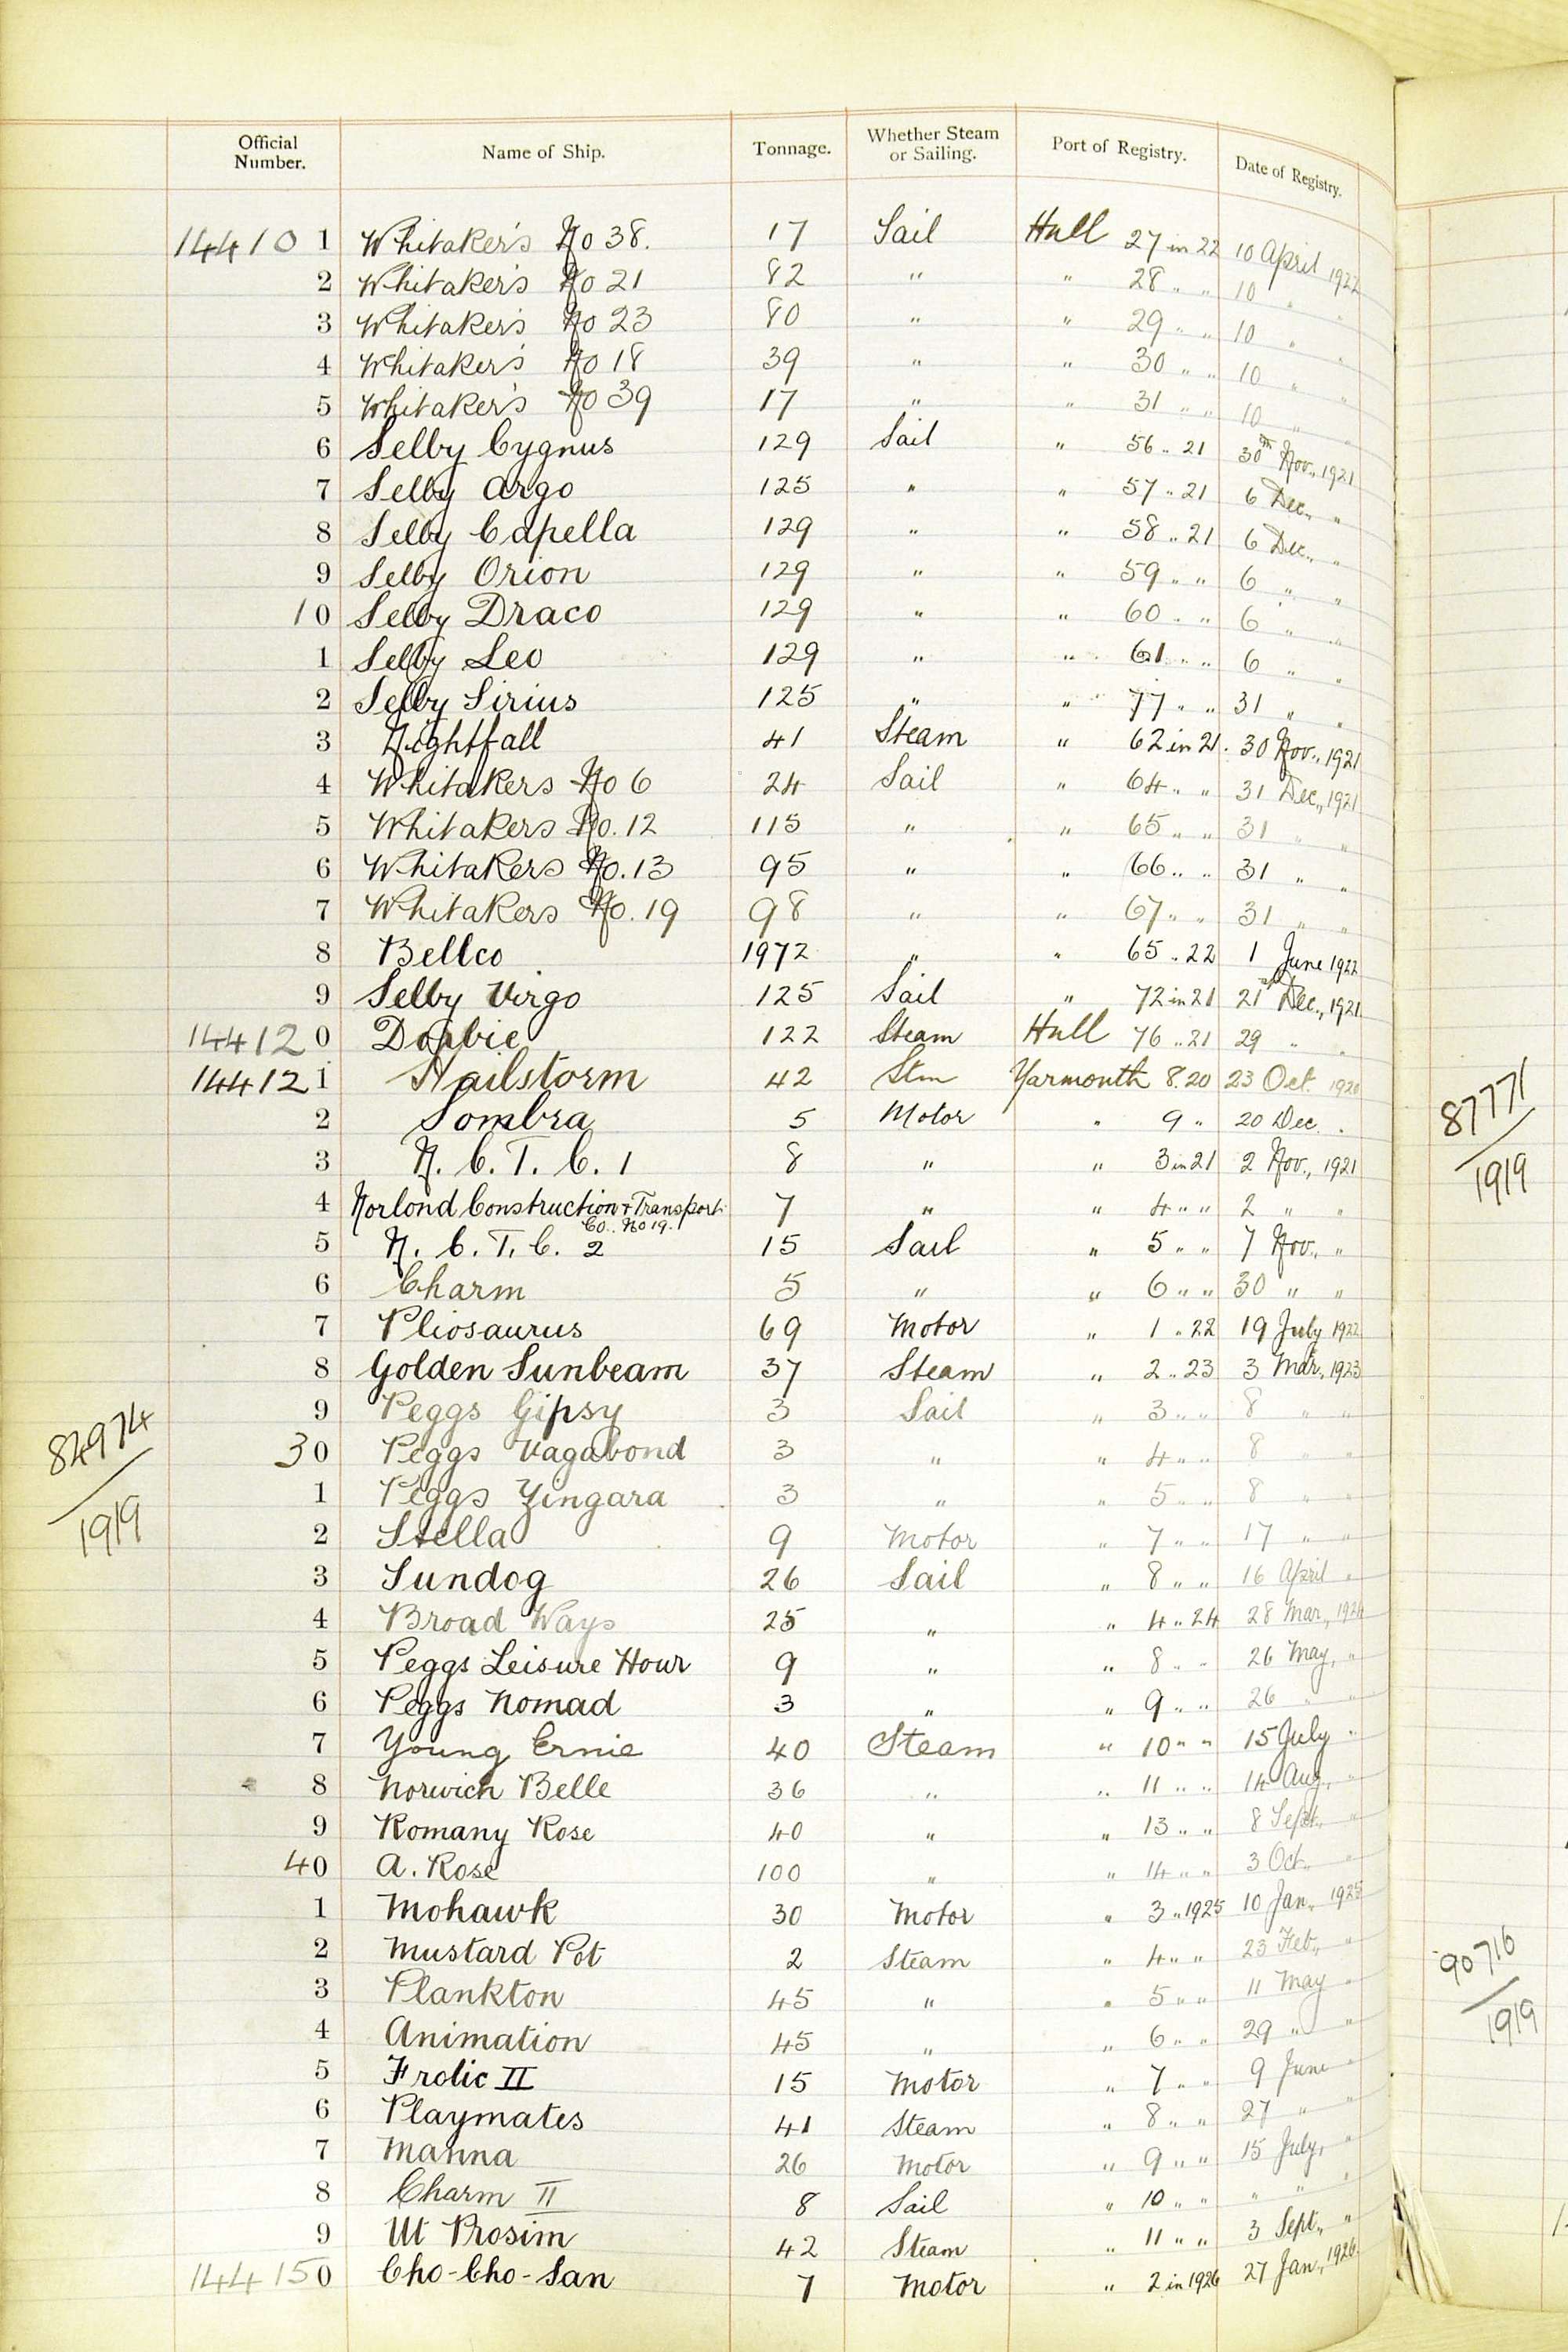 Official Number. Name of Ship. Tonnage. Whether Steam or Sailing. Port of Registry. Date of Registry.
14410 1 Whitaker's No 38. 17 Sail Hull 27 in 22 10 April 1922
2 Whitaker's No 21 82 " " 28 " " 10 " "
3 Whitaker's No 23 80 " " 29 " " 10 " "
4 Whitaker's No 18 39 " " 30 " " 10 " "
5 Whitaker's No 39 17 " " 31 " " 10 " "
6 Selby Cygnus 129 Sail " 56 " 21 30th Nov., 1921
7 Selby Argo 125 " " 57 " 21 6 Dec., "
8 Selby Capella 129 " " 58 " 21 6 Dec., "
9 Selby Orion 129 " " 59 " " 6 " "
10 Selby Draco 129 " " 60 " " 6 " "
1 Selby Leo 129 " " 61 " " 6 " "
2 Selby Sirius 125 " " 77 " " 31 " "
3 Nightfall 41 Steam " 62 in 21. 30 Nov., 1921
4 Whitakers No 6 24 Sail " 64 " " 31 Dec., 1921
5 Whitakers No. 12 115 " " 65 " " 31 " "
6 Whitakers No. 13 95 " " 66 " " 31 " "
7 Whitakers No. 19 98 " " 67 " " 31 " "
8 Bellco 1972 " " 65 " 22 1 June 1922
9 Selby Virgo 125 Sail " 72 in 21 21st Dec., 1921
14412 0 Dorbie 122 Steam Hull 76 " 21 29 " "
14412 1 Hailstorm 42 Stm Yarmouth 8. 20 23 Oct. 1920
2 Sombra 5 Motor " 9 " 20 Dec. "
3 N. C. T. C. 1 8 " " 3 in 21 2 Nov., 1921
4 Norlond Construction + Transport Co. No 19. 7 " " 4 " " 2 " "
5 N. C. T. C. 2 15 Sail " 5 " " 7 Nov., "
6 Charm 5 " " 6 " " 30 " "
7 Pliosaurus 69 Motor " 1 " 22 19 July 1922
8 Golden Sunbeam 37 Steam " 2 " 23 3 Mar., 1923
9 Peggs Gipsy 3 Sail " 3 " " 8 " "
30 Peggs Vagabond 3 " " 4 " " 8 " "
1 Peggs Zingara 3 " " 5 " " 8 " "
2 Stella 9 Motor " 7 " " 17 " "
3 Sundog 26 Sail " 8 " " 16 April "
4 Broad Ways 25 " " 4 " 24 28 Mar., 1924
5 Peggs Leisure Hour 9 " " 8 " " 26 May, "
6 Peggs Nomad 3 " " 9 " " 26 " "
7 Young Ernie 40 Steam " 10 " " 15 July "
8 Norwich Belle 36 " " 11 " " 14 Aug., "
9 Romany Rose 40 " " 13 " " 8 Sept., "
40 A. Rose 100 " " 14 " " 3 Oct. "
1 Mohawk 30 Motor " 3 " 1925 10 Jan., 1925
2 Mustard Pot 2 Steam " 4 " " 23 Feb., "
3 Plankton 45 " " 5 " " 11 May "
4 Animation 45 " " 6 " " 29 " "
5 Frolic II 15 Motor " 7 " " 9 June "
6 Playmates 41 Steam " 8 " " 27 " "
7 Manna 26 Motor " 9 " " 15 July, "
8 Charm II 8 Sail " 10 " " " " "
9 Ut Prosim 42 Steam " 11 " " 3 Sept., "
14415 0 Cho-Cho-San 7 Motor " 2 in 1926 27 Jan., 1926.
84974
1919
87771
1919
90716
1919